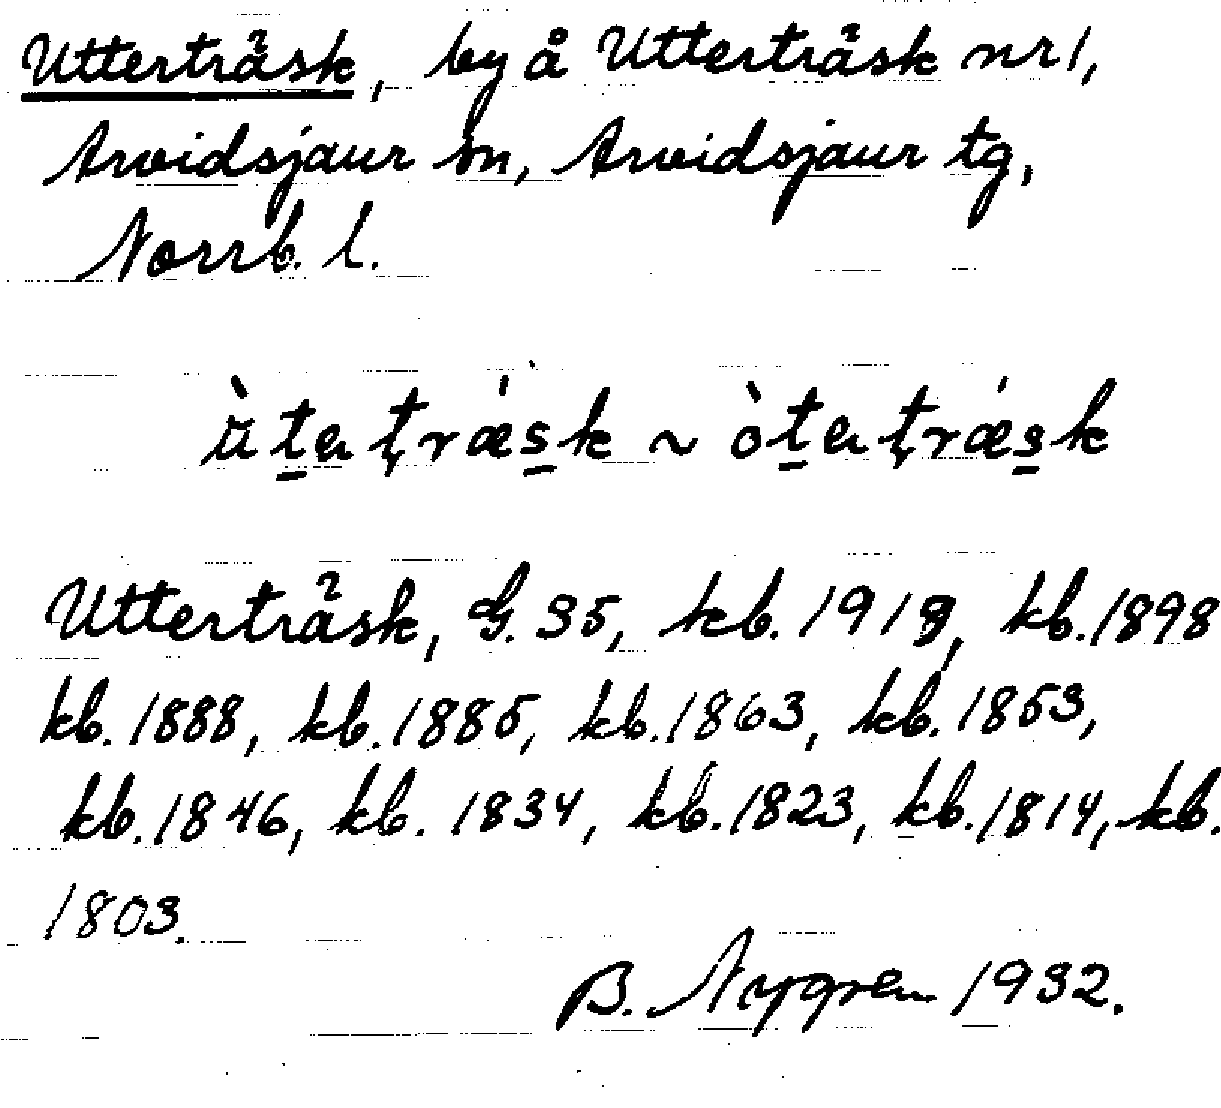 Utterträsk, by å Utterträsk nr 1,
Arvidsjaur sn, Arvidsjaur tg,
Norrb. l.
Utterträsk, G. 35, kb. 1918, kb. 1898
kb. 1888, kb. 1885, kb. 1863, kb. 1853,
kb. 1846, kb. 1834, kb. 1823, kb. 1814, kb.
1803.
B. Nygren 1932.